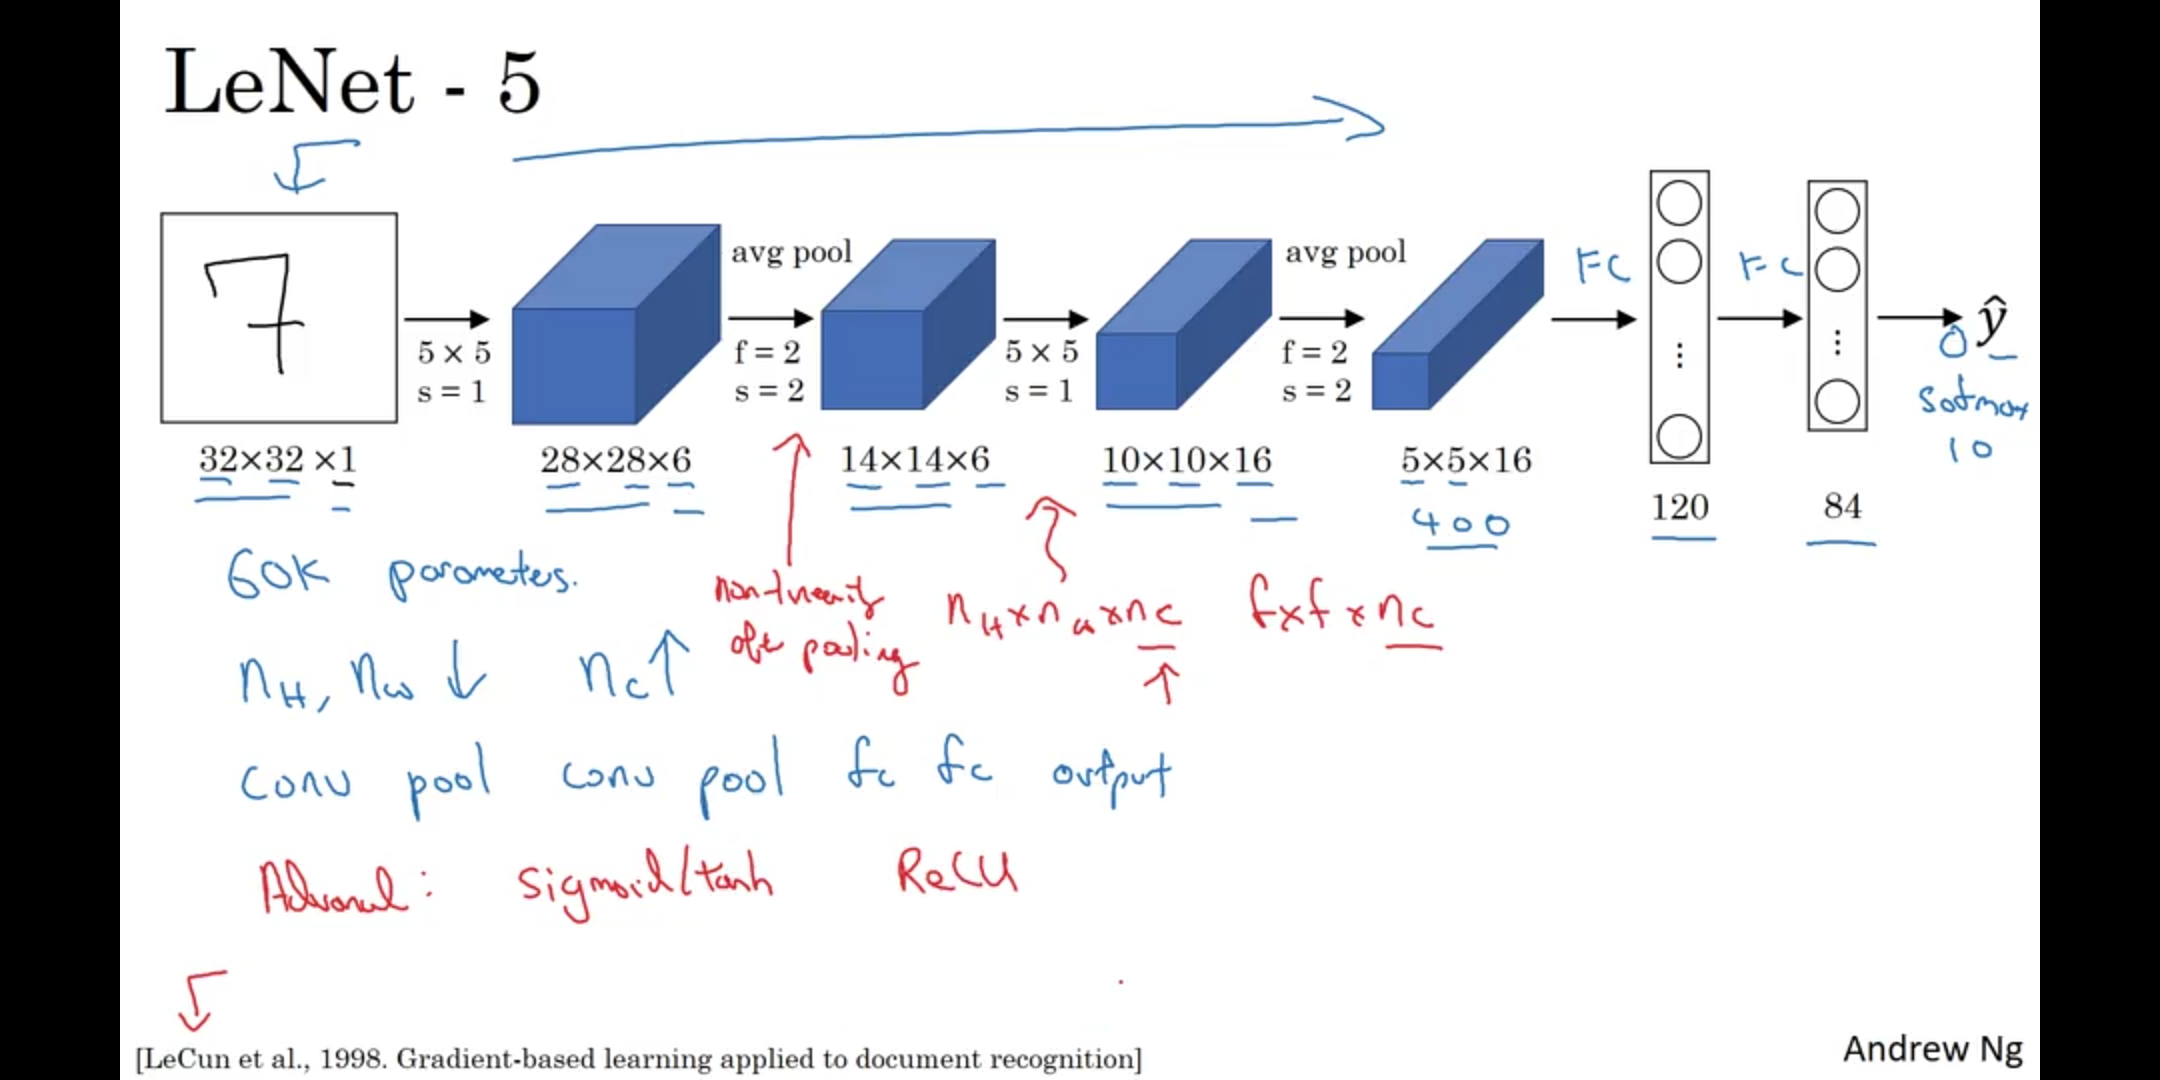 LeNet - 5
7
5 × 5
s = 1
avg pool
f = 2
s = 2
5 × 5
s = 1
avg pool
f = 2
s = 2
FC
FC
ŷ
softmax
10
32×32 ×1
28×28×6
14×14×6
10×10×16
5×5×16
400
120
84
60K parameters.
non-linearity
after pooling
nH×nW×nC f×f×nC
nH, nW ↓ nC↑
conv pool conv pool fc fc output
: sigmoid/tanh ReLU
[LeCun et al., 1998. Gradient-based learning applied to document recognition]
Andrew Ng